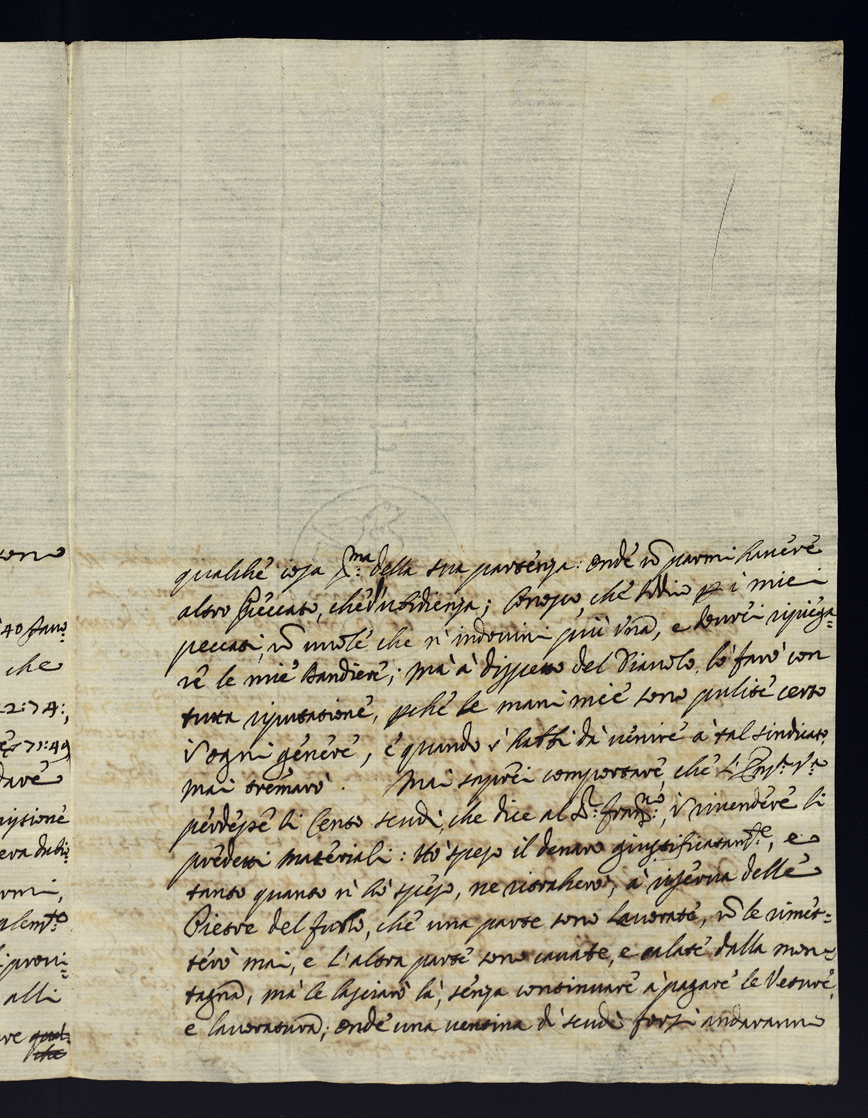 sono
40
che
2:74:,
71:49
dare
missione
eva
ormi,
alem.to
prov:
alli
qualché cosa p.ma della sua partenza: onde nõ parmi havere
altro peccato, che d'ubidienza; conosco, che Iddio p i miei
peccati, nõ vuole che n'indovini più una, e dovrei ripiega=
re le mie bandiere; ma à dispetto del Diavolo, lo farò con
tutta riputatione, pche le mani mie sono pulite certo
d'ogni genere, e quando s'habbi da venire à tal sindicato
mai tremarò. Mai saprei comportare, che
perdesse li cento scudi, che dice al Sr. Fran.co, i rivendere li
predetti materiali: Hò speso il denaro giustificatam.te, e
tanto quanto n'hò speso, ne ritraherò, à riserva delle
Pietre del furlo, che una parte sono lavorate, nõ le rimet=
terò mai, e l'altra parte sono cavate, e calate dalla mon=
tagna, ma le lasciarò là, senza continuare à pagare le Veture,
e lavoratura; onde una ventina di scudi forsi andaranno